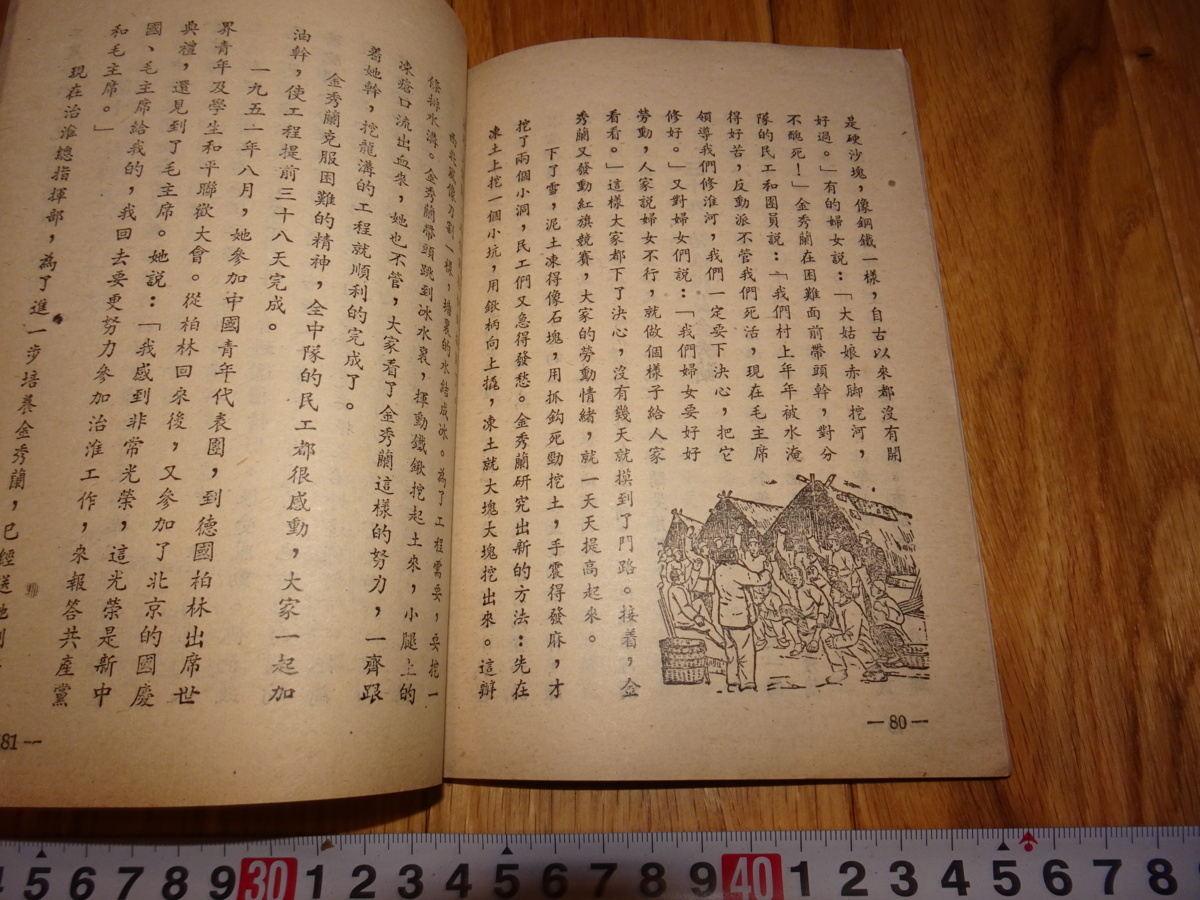 是硬沙塊，像鋼鐵一樣，自古以來都沒有開
好過。」有的婦女說：「大姑娘赤脚挖河，
不醜死！」金秀蘭在困難面前帶頭幹，對分
隊的民工和團員說：「我們村上年年被水淹
得好苦，反動派不管我們死活，現在毛主席
領導我們修淮河，我們一定要下決心，把它
修好。」又對婦女們說：「我們婦女要好好
勞動，人家說婦女不行，就做個樣子給人家
看看。」這樣大家都下了決心，沒有幾天就摸到了門路。接着，金
秀蘭又發動紅旗競賽，大家的勞動情緒，就一天天提高起來。
下了雪，泥土凍得像石塊，用抓鈎死勁挖土，手震得發麻，才
挖了兩個小洞，民工們又急得發愁。金秀蘭研究出新的方法：先在
凍土上挖一個小坑，用鍬柄向上撬，凍土就大塊大塊挖出來。這辦
—80—
像刀割一樣，塘裏的水結成冰。為了工程需要，要挖一
條排水溝。金秀蘭帶頭跳到冰水裏，揮動鐵鍬挖起土來，小腿上的
凍瘡口流出血來，她也不管，大家看了金秀蘭這樣的努力，一齊跟
着她幹，挖龍溝的工程就順利的完成了。
金秀蘭克服困難的精神，全中隊的民工都很感動，大家一起加
油幹，使工程提前三十八天完成。
一九五一年八月，她參加中國青年代表團，到德國柏林出席世
界青年及學生和平聯歡大會。從柏林回來後，又參加了北京的國慶
典禮，還見到了毛主席。她說：「我感到非常光榮，這光榮是新中
國、毛主席給我的，我回去要更努力參加治淮工作，來報答共產黨
和毛主席。」
現在治淮總指揮部，為了進一步培養金秀蘭，已經送她到
81—
30 40
5 6 7 8 9 1 2 3 4 5 6 7 8 9 1 2 3 4 5 6 7 8